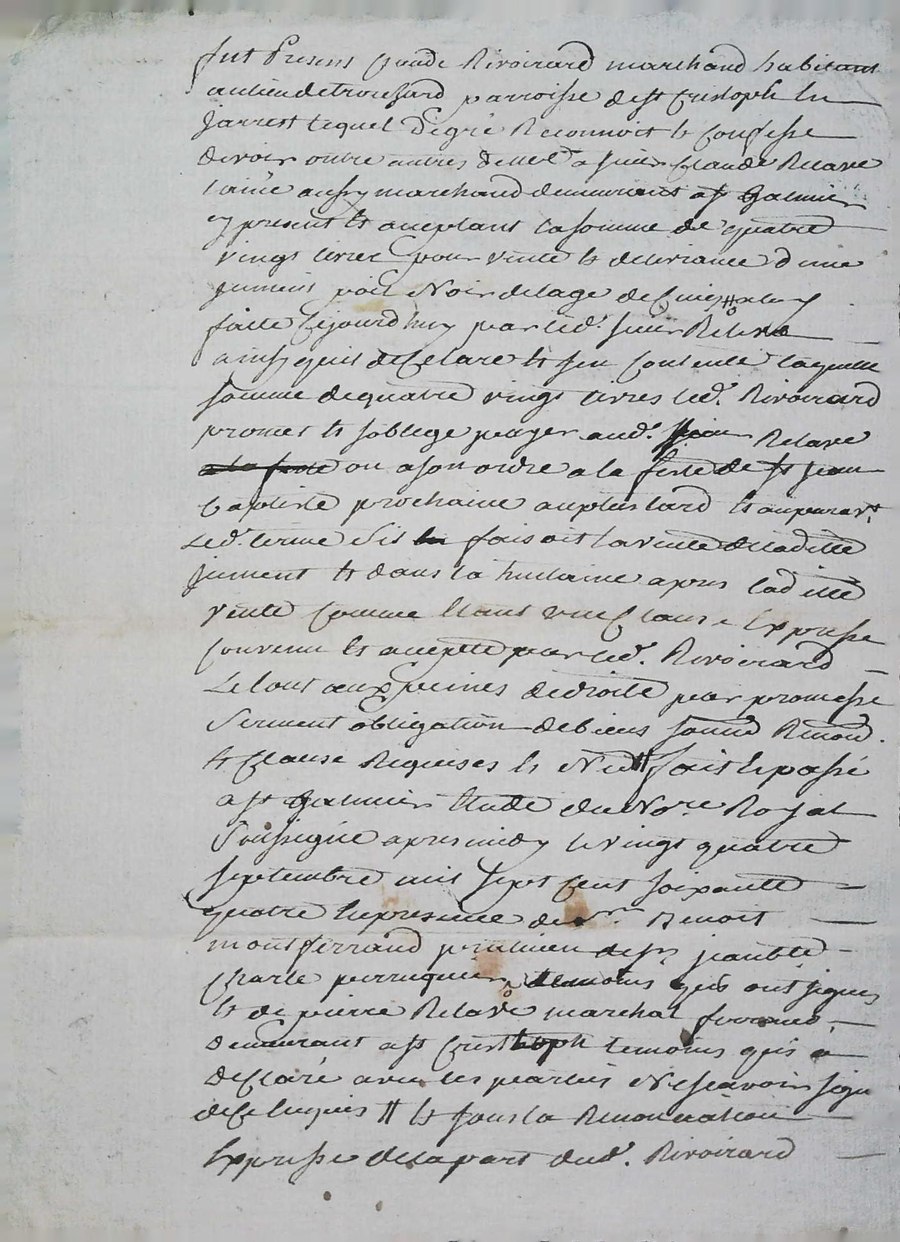 fut Présent Claude Rivoirard marchand habitant
au lieu de parroisse de st Cristophle en
Jarrest lequel de gré Reconnoit et Confesse
devoir outre autres a sieur Claude Relave
laine aussy marchand demeurant a st Galmier
cy present et aceptant la somme de quatre
vingt livres pour vente et delivrance d'une
jument poil Noir de lage de
faite cejourdhuy par led. sieur Relave
ainsy quil declare et sen Contente laquelle
somme de quatre vingt livres led. Rivoirard
promet et soblige payer aud. sieur Relave
ou a son ordre a la feste de st jean
baptiste prochaine au plus tard et auparavt
Led. terme sil faisoit la vente de laditte
jument et dans la huitaine apres laditte
vente Comme étant une Clause Expresse
Convenue et aceptée par led. Rivoirard
Le tout aux peines de droit par promesse
Serment obligation de biens soumis Renon.
et Clause Requises et fait et passé
a st Galmier Etude du Nore Royal
Soussigné apres midy le vingt quatre
septembre mil sept cent soixante
quatre En presence de Sr Benoit
montferrand praticien et sr jean bte
Charle perruquier temoins qui ont signes
et de pierre Relave marchal ferrand
demeurant a st Cristophle temoins qui a
declaré avec les parties Ne scavoir signer
de ce Enquis # et sous la Renonciation
Expresse de la part dud. Rivoirard